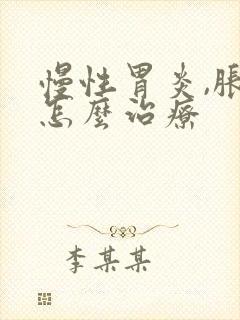 慢性胃炎,脹
怎麼治療
李某某